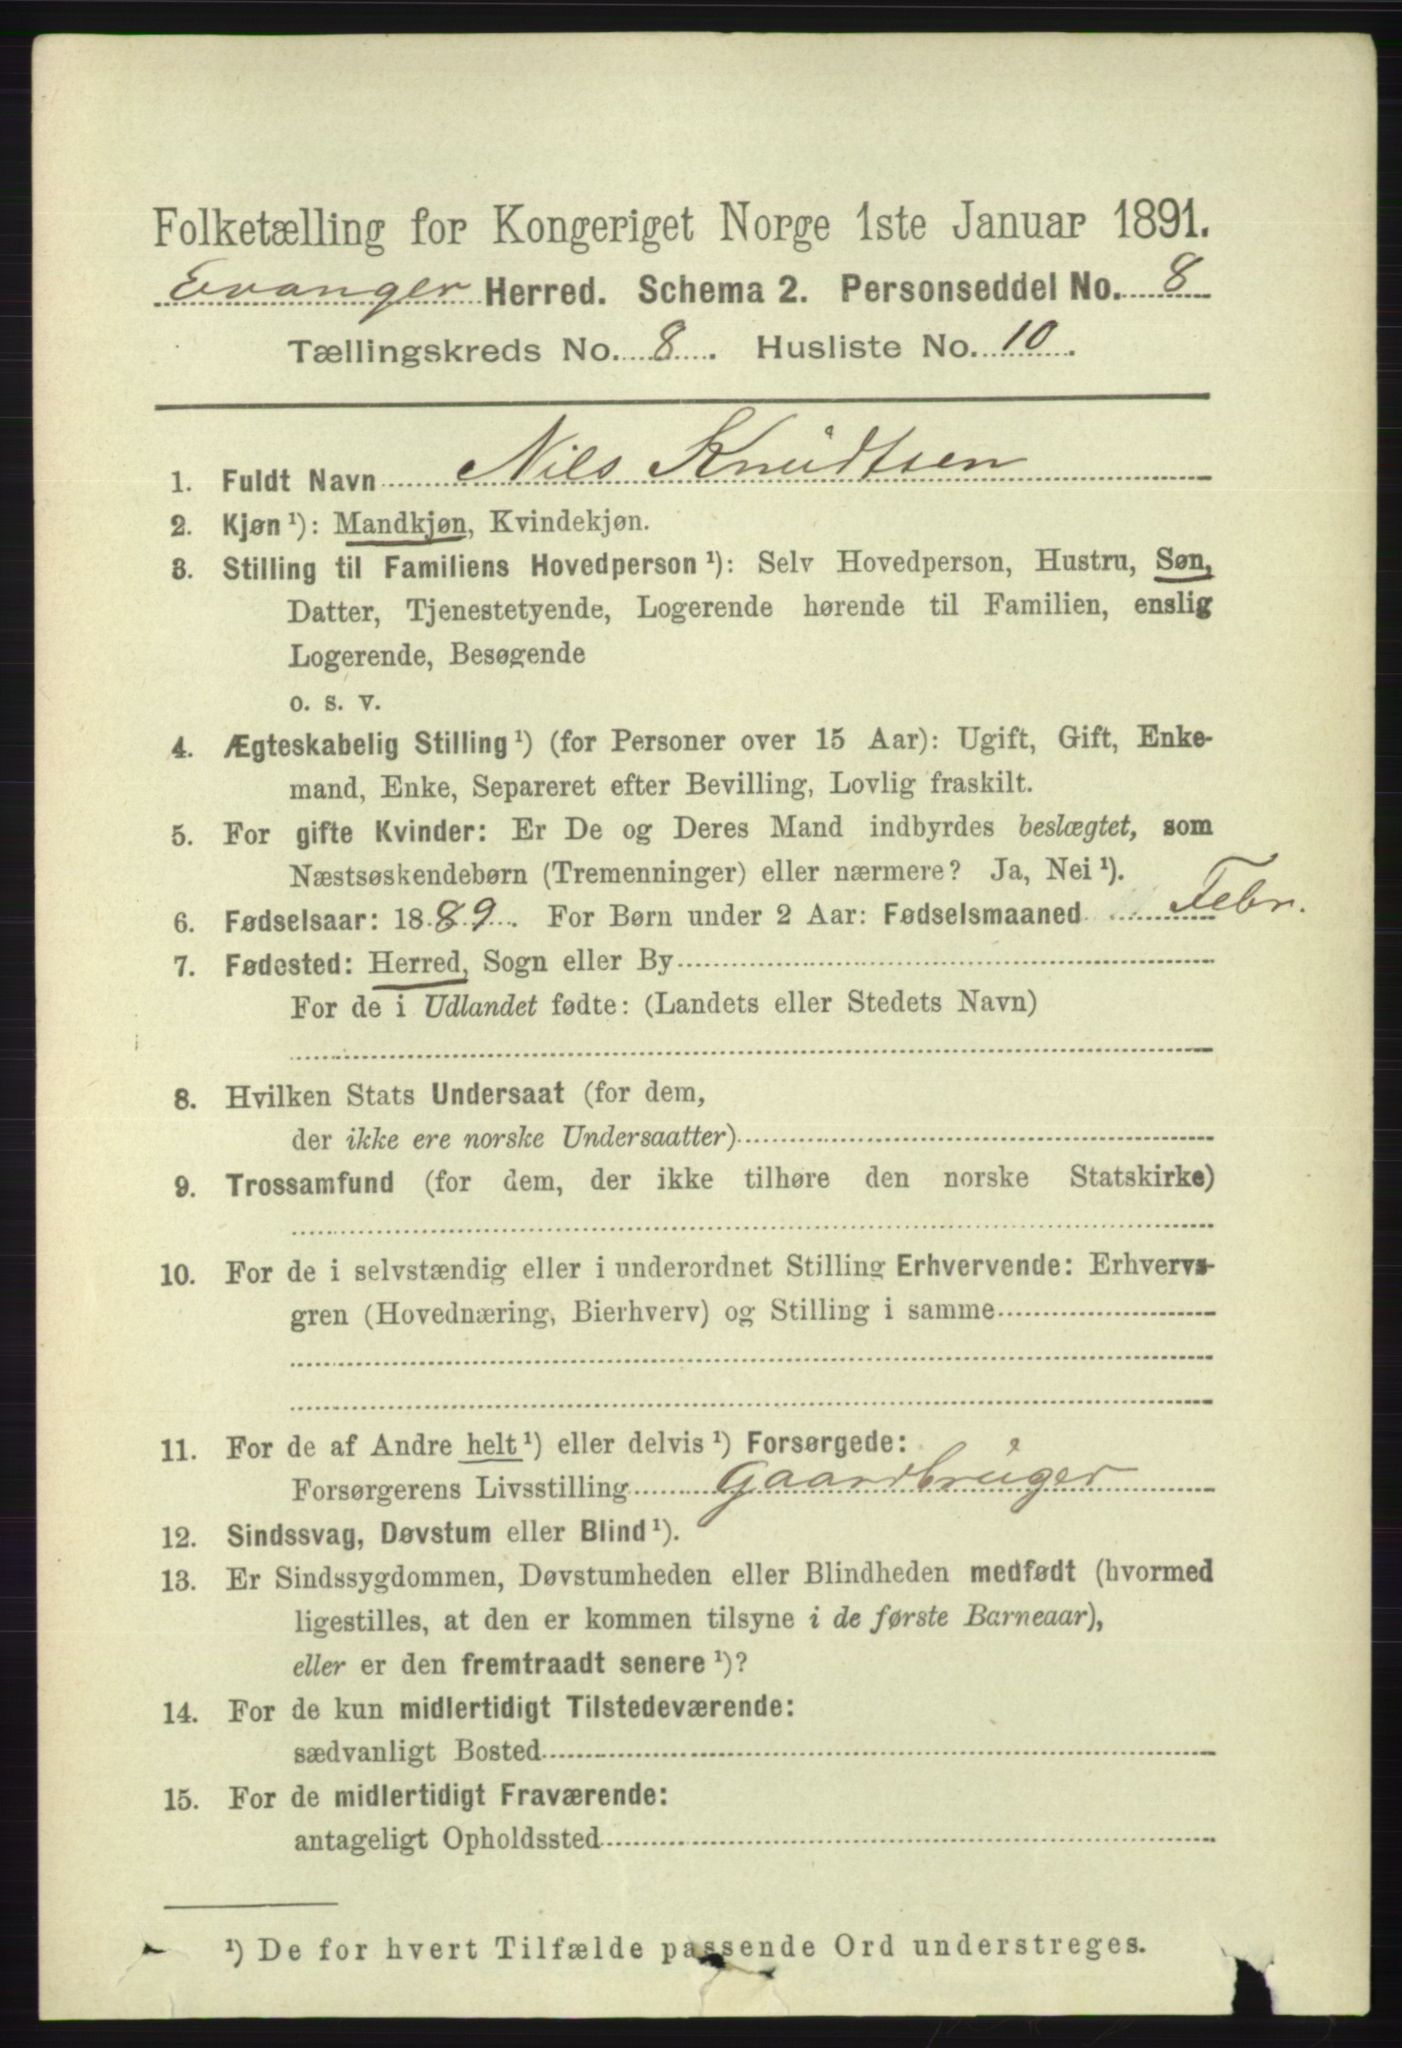 Folketælling for Kongeriget Norge 1ste Januar 1891.
Evanger Herred. Schema 2. Personseddel No. 8
Tællingskreds No. 8. Husliste No. 10.
1. Fuldt Navn Nils Knudtsen
2. Kjøn¹): Mandkjøn, Kvindekjøn.
3. Stilling til Familiens Hovedperson¹): Selv Hovedperson, Hustru, Søn,
Datter, Tjenestetyende, Logerende hørende til Familien, enslig
Logerende, Besøgende
o. s. v.
4. Ægteskabelig Stilling¹) (for Personer over 15 Aar): Ugift, Gift, Enke-
mand, Enke, Separeret efter Bevilling, Lovlig fraskilt.
5. For gifte Kvinder: Er De og Deres Mand indbyrdes beslægtet, som
Næstsøskendebørn (Tremenninger) eller nærmere? Ja, Nei¹).
6. Fødselsaar: 1889. For Børn under 2 Aar: Fødselsmaaned Febr.
7. Fødested: Herred, Sogn eller By
For de i Udlandet fødte: (Landets eller Stedets Navn)
8. Hvilken Stats Undersaat (for dem,
der ikke ere norske Undersaatter)
9. Trossamfund (for dem, der ikke tilhøre den norske Statskirke)
10. For de i selvstændig eller i underordnet Stilling Erhvervende: Erhvervs-
gren (Hovednæring, Bierhverv) og Stilling i samme
11. For de af Andre helt¹) eller delvis¹) Forsørgede:
Forsørgerens Livsstilling Gaardbruger
12. Sindssvag, Døvstum eller Blind¹).
13. Er Sindssygdommen, Døvstumheden eller Blindheden medfødt (hvormed
ligestilles, at den er kommen tilsyne i de første Barneaar),
eller er den fremtraadt senere¹)?
14. For de kun midlertidigt Tilstedeværende:
sædvanligt Bosted
15. For de midlertidigt Fraværende:
antageligt Opholdssted
¹) De for hvert Tilfælde passende Ord understreges.